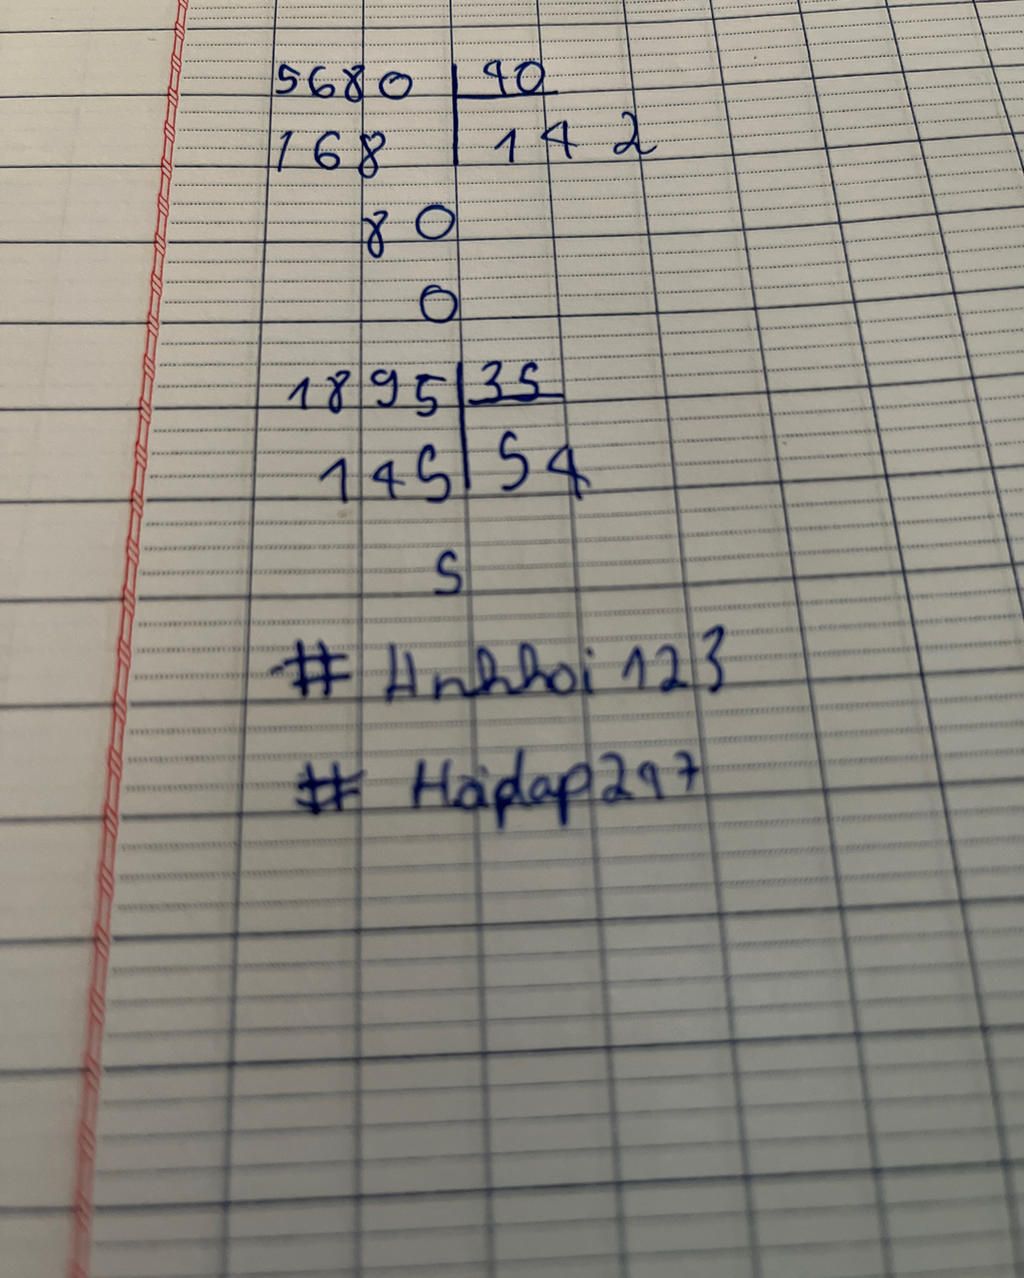 5680 40
168 142
80
0
1895 35
145 54
5
# Anhhoi123
# Hoidap247